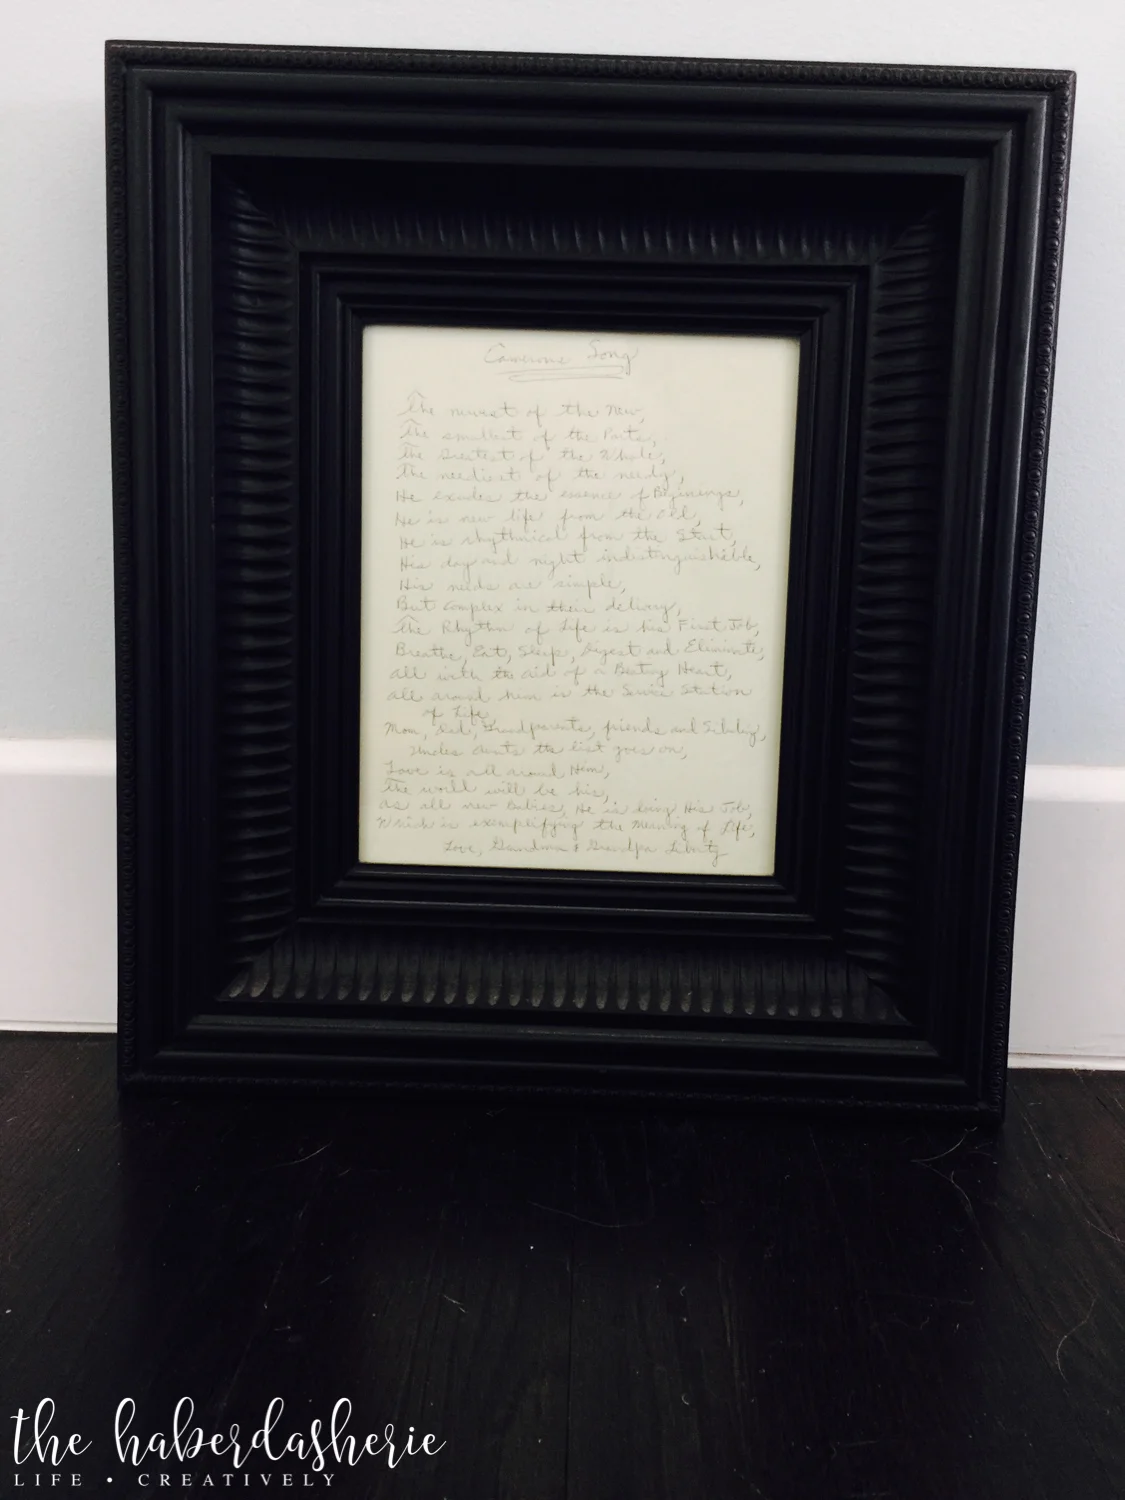 Camerons Song
The newest of the New,
The smallest of the Parts,
The Greatest of the Whole,
The neediest of the needy,
He exudes the essence of Beginings,
He is new life from the old,
He is rhythmical from the Start,
His day and night indistinguishible,
His needs are simple,
But complex in their delivery,
The Rhythm of Life is his First Job,
Breathe, Eat, Sleep, Digest and Eliminate,
all with the aid of a Beating Heart,
all around him is the Service Station
of Life,
Mom, Dad, Grandparents, friends and Sibling,
Uncles Aunts the list goes on,
Love is all around Him,
The world will be his,
As all new Babies, He is doing His Job,
Which is exemplifying the Meaning of Life,
Love, Grandma & Grandpa
the haberdasherie
LIFE • CREATIVELY